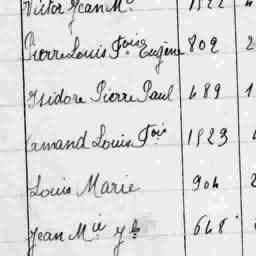 Victor Jean M.
Pierre Louis Fois Eugène 802 2
Isidore Pierre Paul 689 1
Amand Louis Fois 1823
Louis Marie 904 2
Jean Mie 648